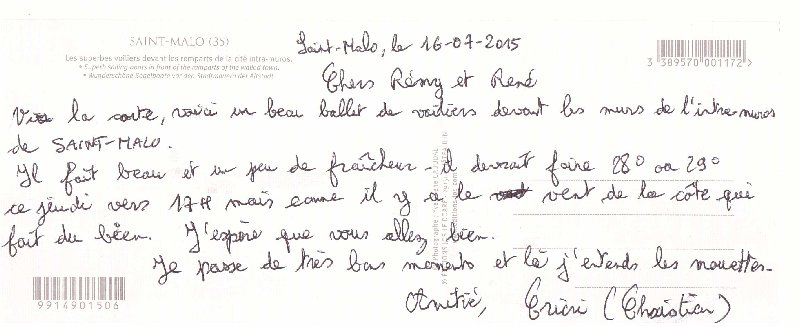 SAINT-MALO (35)
Les superbes voiliers devant les remparts de la cité intra-muros.
• Superb sailing boats in front of the ramparts of the walled town.
• Wunderschöne Segelboote vor den Stadtmauern der Altstadt.
Saint-Malo, le 16-07-2015
3 389570 001172 >
Chers Rémy et René
Via la carte, voici un beau ballet de voiliers devant les murs de l'intra-muros
de SAINT-MALO.
Il fait beau et un peu de fraîcheur - il devrait faire 28° ou 29°
ce jeudi vers 17H mais comme il y a le vent de la côte qui
fait du bien. J'espère que vous allez bien.
Je passe de très bons moments et là j'entends les mouettes.
Amitié, Cricri (Christian)
9914901506